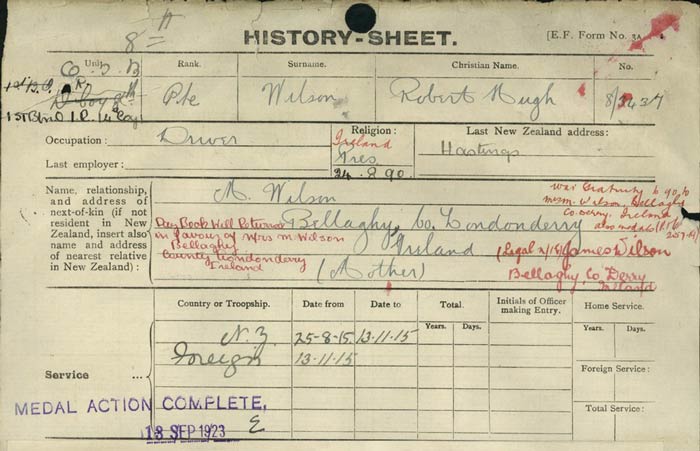 8th
HISTORY-SHEET.
[E.F. Form No. 3A
Unit.
Rank.
Surname.
Christian Name.
No.
Pte
Wilson
Robert Hugh
8/3437
Occupation :
Driver
Religion :
Ireland
Pres
24.8.90.
Last New Zealand address:
Hastings
Last employer :
Name, relationship, and address of next-of-kin (if not resident in New Zealand, insert also name and address of nearest relative in New Zealand) :
M. Wilson
Bellaghy, Co. Londonderry
Ireland
(Mother)
Pay Book Will Returned
in favour of Mrs M. Wilson
Bellaghy
County Londonderry
Ireland
War Gratuity to go to
Mrs M. Wilson, Bellaghy
Co Derry, Ireland
also medals
(Legal n/k) James Wilson
Bellaghy, Co. Derry
Ireland
Service ...
Country or Troopship.
Date from
Date to
Total.
Initials of Officer making Entry.
Home Service.
Years.
Days.
Years.
Days.
N.Z.
25-8-15.
13-11-15
Foreign
13-11-15
Foreign Service :
Total Service :
MEDAL ACTION COMPLETE,
13 SEP 1923